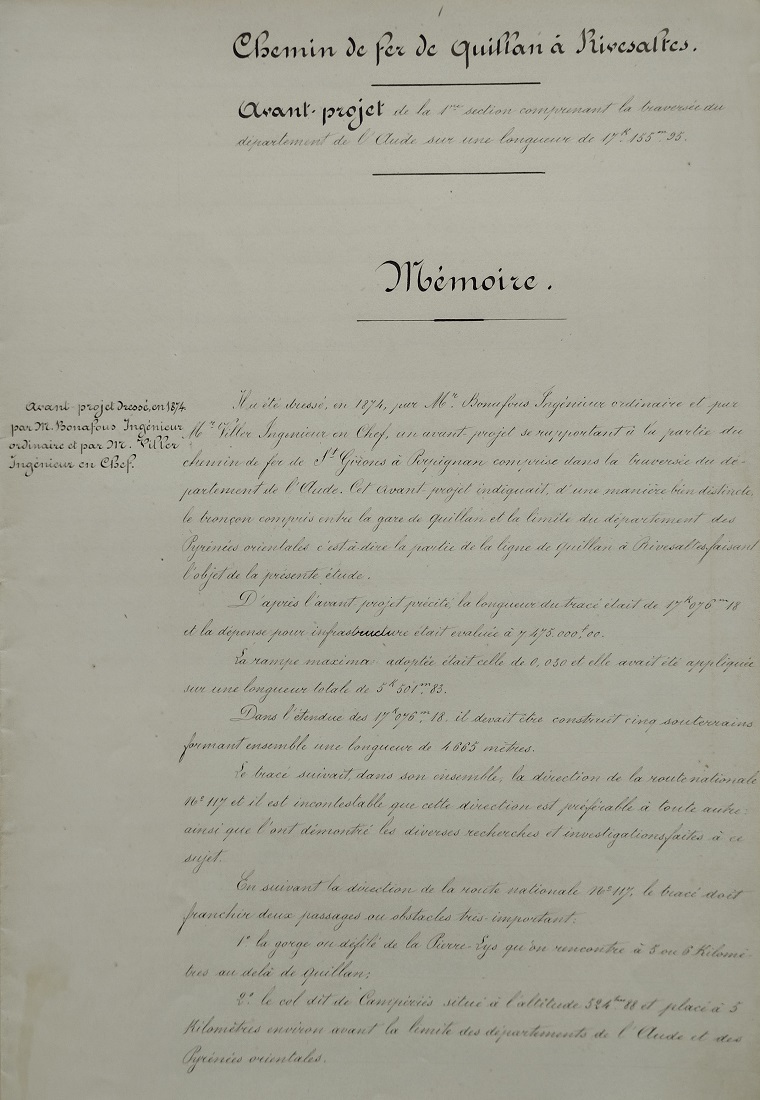 Chemin de fer de Quillan à Rivesaltes.
Avant-projet de la 1re section comprenant la traversée du
département de l'Aude sur une longueur de 17k.155m.95.
Mémoire.
Avant-projet dressé, en 1874
par M. Bonafous Ingénieur
ordinaire et par M. Viller
Ingénieur en Chef.
Il a été dressé, en 1874, par Mr. Bonafous Ingénieur ordinaire et par
Mr Viller Ingénieur en Chef, un avant-projet se rapportant à la partie du
chemin de fer de St Girons à Perpignan comprise dans la traversée du dé-
partement de l'Aude. Cet avant-projet indiquait, d'une manière bien distincte,
le tronçon compris entre la gare de Quillan et la limite du département des
Pyrénées orientales c'est-à-dire la partie de la ligne de Quillan à Rivesaltes faisant
l'objet de la présente étude.
D'après l'avant projet précité, la longueur du tracé était de 17k076m18
et la dépense pour infrastructure était évaluée à 7 475.000f.00.
La rampe maxima adoptée était celle de 0,030 et elle avait été appliquée
sur une longueur totale de 5k501m.83.
Dans l'étendue des 17k076m.18. il devait être construit cinq souterrains
formant ensemble une longueur de 4665 mètres.
Le tracé suivait, dans son ensemble, la direction de la route nationale
No 117 et il est incontestable que cette direction est préférable à toute autre
ainsi que l'ont démontré les diverses recherches et investigations faites à ce
sujet.
En suivant la direction de la route nationale No 117, le tracé doit
franchir deux passages ou obstacles très-important:
1o la gorge ou défilé de la Pierre-Lys qu'on rencontre à 5 ou 6 Kilomè-
tres au delà de Quillan;
2o. le col dit de Campériès situé à l'altitude 524m88 et placé à 5
Kilomètres environ avant la limite des départements de l'Aude et des
Pyrénées orientales.